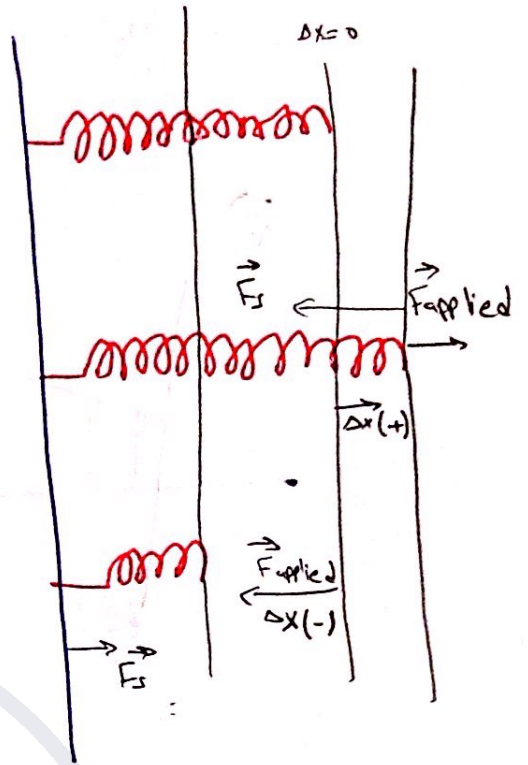 Δx=0
Fs
Fapplied
Δx(+)
Fapplied
Δx(-)
Fs